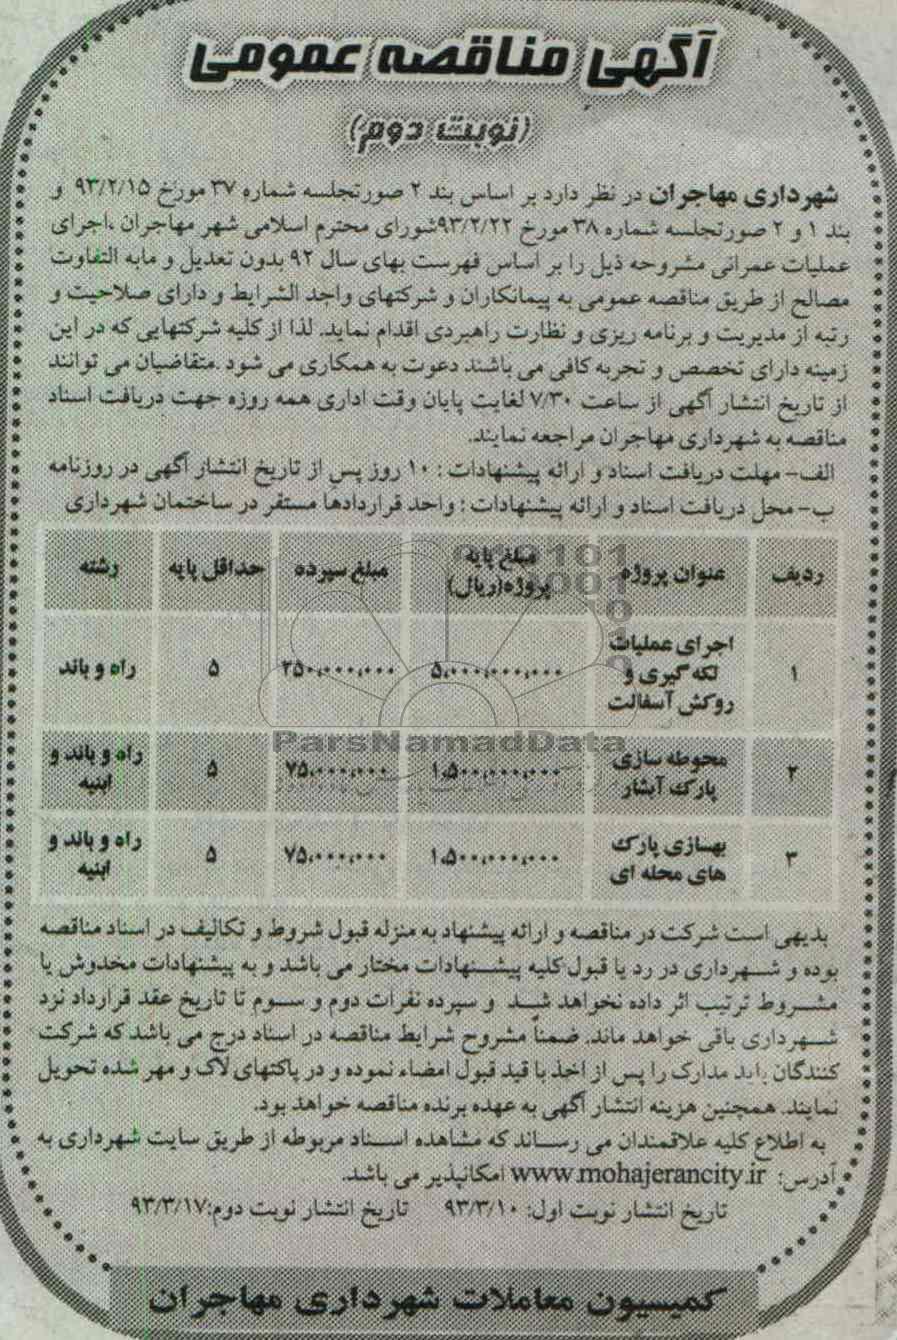 آگهی مناقصه عمومی
(نوبت دوم)
شهرداری مهاجران در نظر دارد بر اساس بند ۲ صورتجلسه شماره ۳۷ مورخ ۹۳/۲/۱۵ و
بند ۱ و ۲ صورتجلسه شماره ۳۸ مورخ ۹۳/۲/۲۲شورای محترم اسلامی شهر مهاجران ،اجرای
عملیات عمرانی مشروحه ذیل را بر اساس فهرست بهای سال ۹۲ بدون تعدیل و مابه التفاوت
مصالح از طریق مناقصه عمومی به پیمانکاران و شرکتهای واجد الشرایط و دارای صلاحیت و
رتبه از مدیریت و برنامه ریزی و نظارت راهبردی اقدام نماید. لذا از کلیه شرکتهایی که در این
زمینه دارای تخصص و تجربه کافی می باشند دعوت به همکاری می شود .متقاضیان می توانند
از تاریخ انتشار آگهی از ساعت ۷/۳۰ لغایت پایان وقت اداری همه روزه جهت دریافت اسناد
مناقصه به شهرداری مهاجران مراجعه نمایند.
الف- مهلت دریافت اسناد و ارائه پیشنهادات : ۱۰ روز پس از تاریخ انتشار آگهی در روزنامه
ب- محل دریافت اسناد و ارائه پیشنهادات : واحد قراردادها مستقر در ساختمان شهرداری
ردیف عنوان پروژه مبلغ پایه پروژه(ریال) مبلغ سپرده حداقل پایه رشته
۱ اجرای عملیات لکه گیری و روکش آسفالت ۵,۰۰۰,۰۰۰,۰۰۰ ۲۵۰,۰۰۰,۰۰۰ ۵ راه و باند
۲ محوطه سازی پارک آبشار ۱,۵۰۰,۰۰۰,۰۰۰ ۷۵,۰۰۰,۰۰۰ ۵ راه و باند و ابنیه
۳ بهسازی پارک های محله ای ۱,۵۰۰,۰۰۰,۰۰۰ ۷۵,۰۰۰,۰۰۰ ۵ راه و باند و ابنیه
ParsNamadData
بدیهی است شرکت در مناقصه و ارائه پیشنهاد به منزله قبول شروط و تکالیف در اسناد مناقصه
بوده و شهرداری در رد یا قبول کلیه پیشنهادات مختار می باشد و به پیشنهادات مخدوش یا
مشروط ترتیب اثر داده نخواهد شد و سپرده نفرات دوم و سوم تا تاریخ عقد قرارداد نزد
شهرداری باقی خواهد ماند. ضمناً مشروح شرایط مناقصه در اسناد درج می باشد که شرکت
کنندگان باید مدارک را پس از اخذ با قید قبول امضاء نموده و در پاکتهای لاک و مهر شده تحویل
نمایند. همچنین هزینه انتشار آگهی به عهده برنده مناقصه خواهد بود.
به اطلاع کلیه علاقمندان می رساند که مشاهده اسناد مربوطه از طریق سایت شهرداری به
آدرس: www.mohajerancity.ir امکانپذیر می باشد.
تاریخ انتشار نوبت اول: ۹۳/۳/۱۰ تاریخ انتشار نوبت دوم:۹۳/۳/۱۷
کمیسیون معاملات شهرداری مهاجران